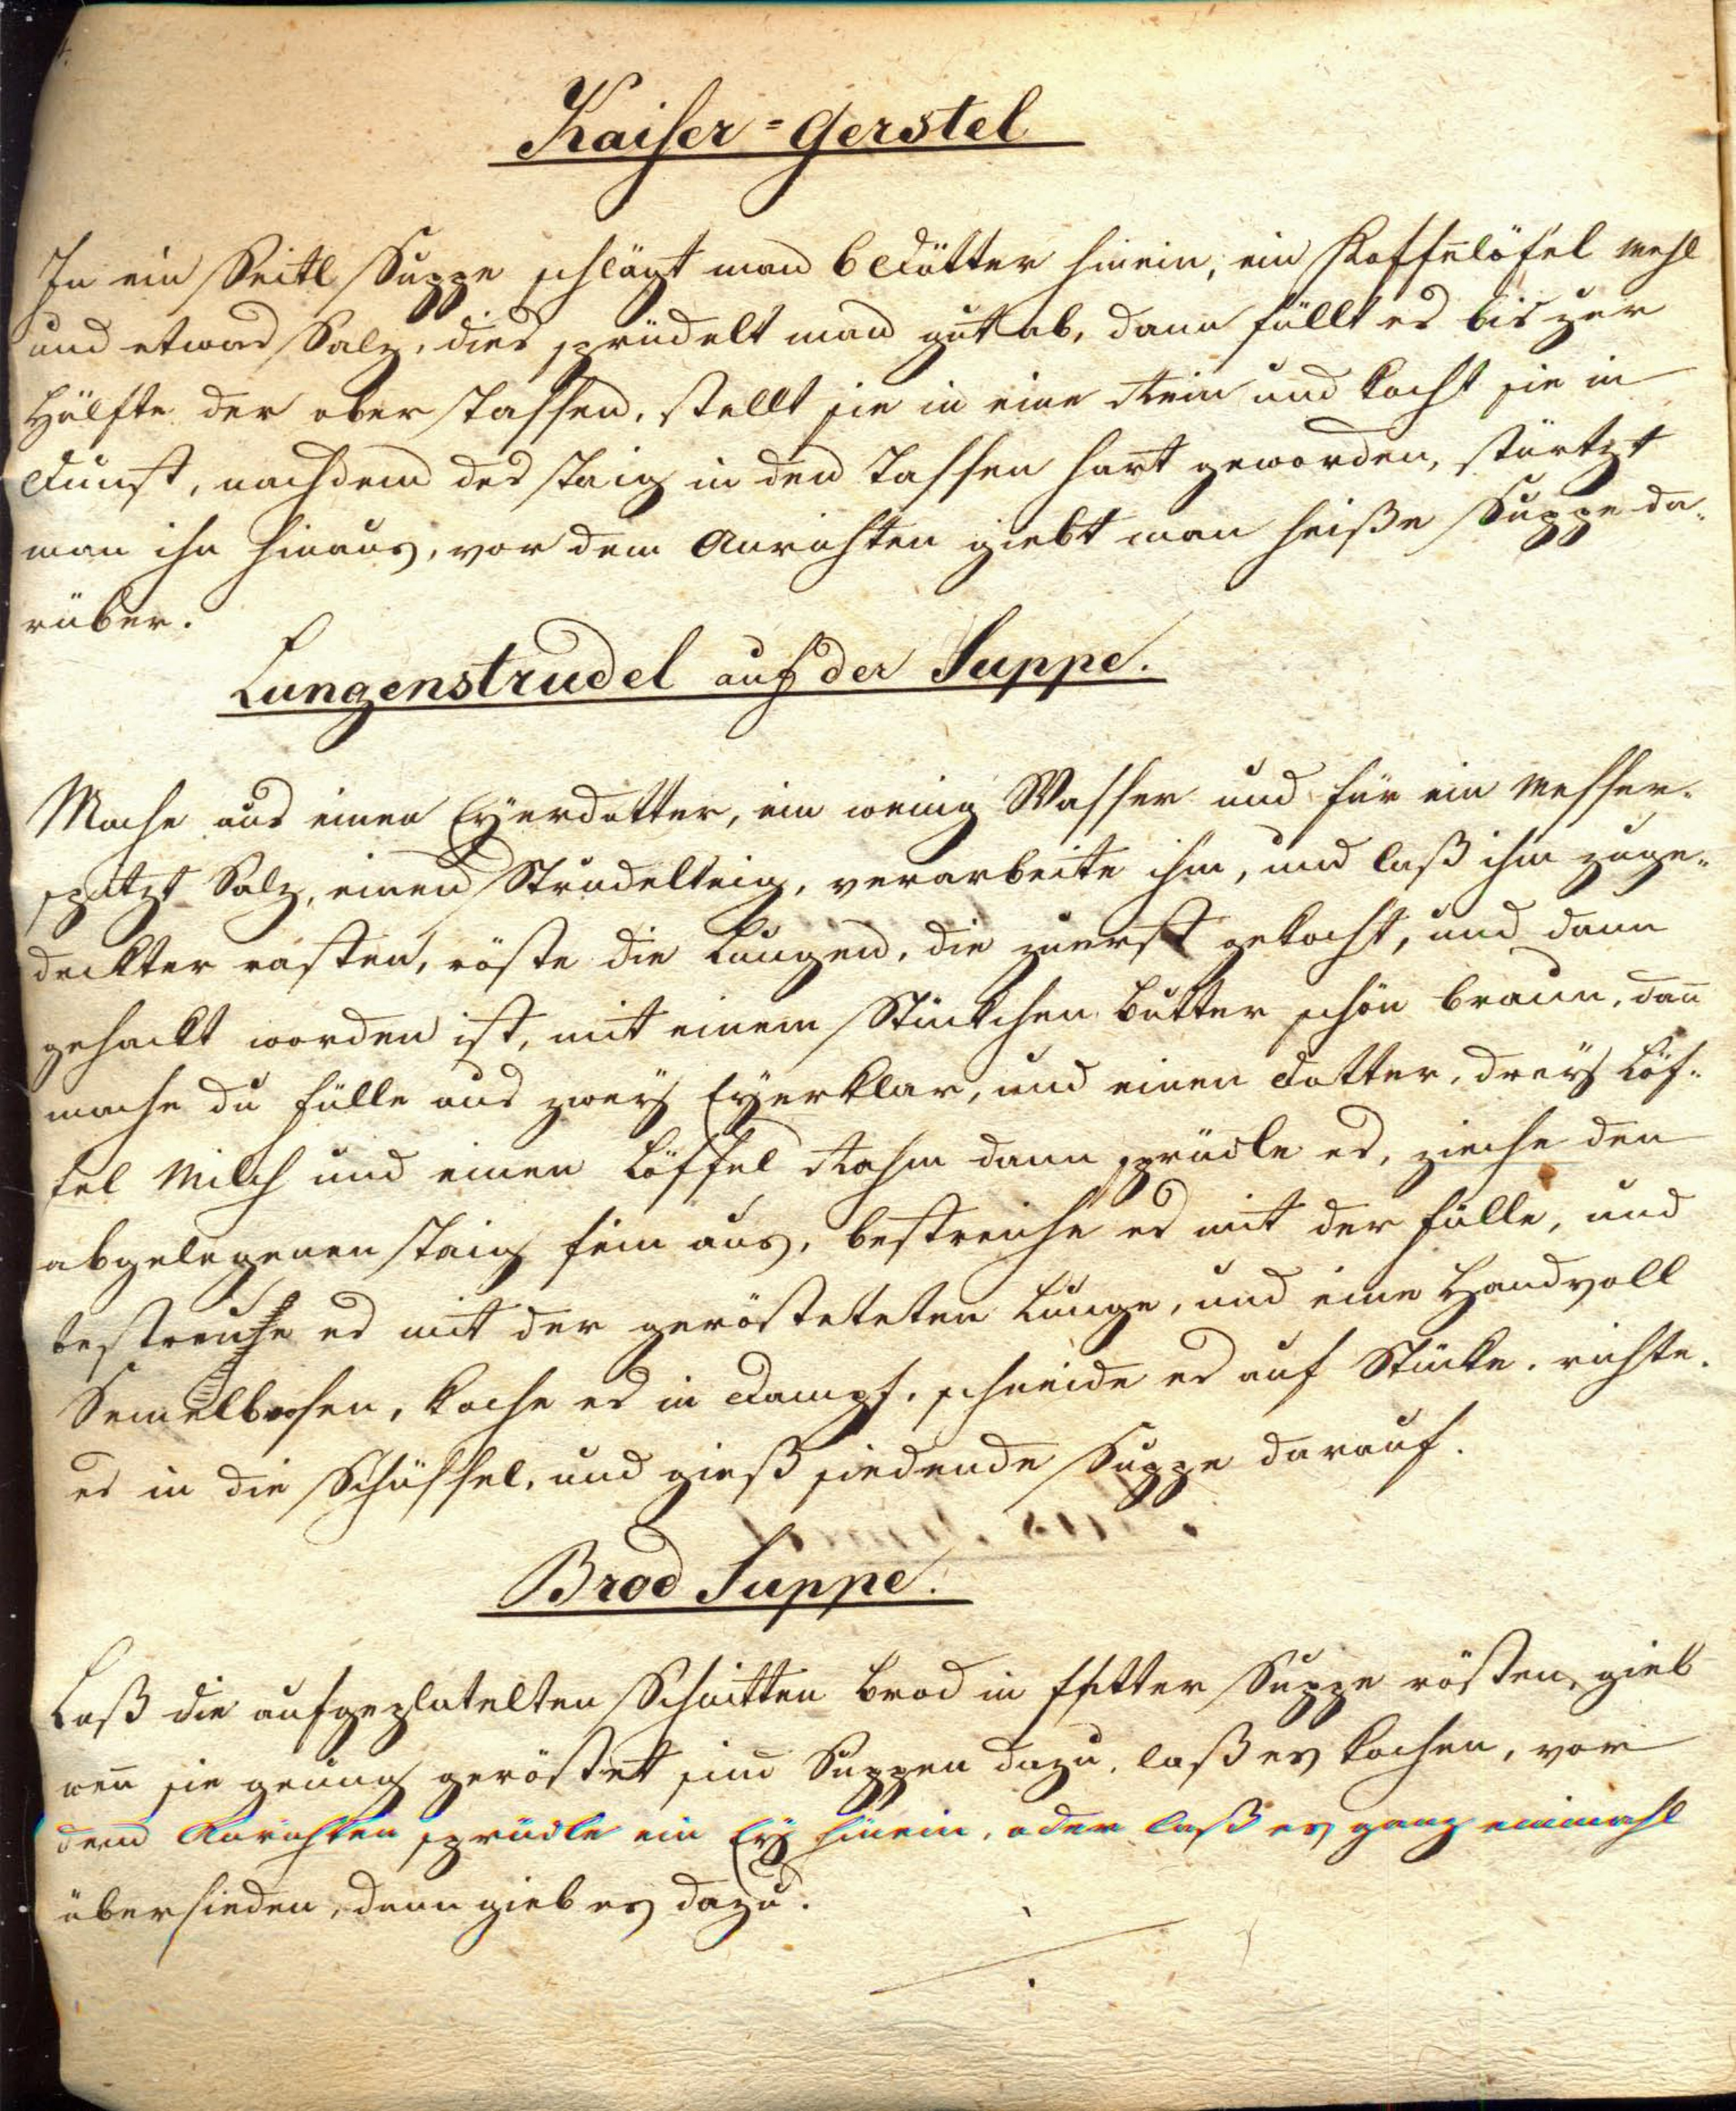 Kaiser=Gerstel
In ein Seitl Suppe schlägt man 6 Dötter hinein, ein Kaffelöfel Mehl
und etwas Salz, dies sprüdelt man gut ab, dann füllt es bis zur
Hälfte der ober Tassen, stellt sie in eine Rein und kocht sie in
Dunst, nachdem des Taig in den Tassen hart geworden, stürtzt
man ihn hinaus, vor dem Anrichten giebt man heiße Suppe da-
rüber.
Lungenstrudel auf der Suppe.
Mache aus einen Eyerdotter, ein wenig Wasser und für ein Messer-
spitzt Salz, einen Strudelteig, verarbeite ihm, und laß ihm zuge-
deckter rasten, röste die Lungen, die zuerst gekocht, und dann
gehackt worden ist, mit einem Stückchen Butter schön braun, dan̄
mache du Fülle aus zweÿ Eyerklar, und einen Dotter, dreÿ Löf-
fel Milch und einen Löffel Rahm dann sprüdle es, ziehe den
abgelegenen Taig fein aus, bestreiche es mit der Fülle, und
bestreuhe es mit der gerösteteten Lunge, und eine Handvoll
Semelbrosen, koche es in Dampf, schneide es auf Stücke, richte
es in die Schüssel, und gieß siedende Suppe darauf.
Brod Suppe.
Laß die aufgeplatelten Schnitten Brod in fetter Suppe rösten, gieb
wen̄ sie genug geröstet sind Suppen dazu, laß es kochen, vor
dem Anrichten sprüdle ein Ey hinein, oder laß es ganz einmahl
übersieden, dann gieb es dazu.